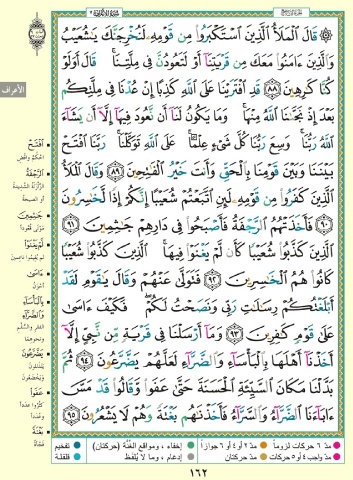 قَالَ ٱلْمَلَأُ ٱلَّذِينَ ٱسْتَكْبَرُوا۟ مِن قَوْمِهِۦ لَنُخْرِجَنَّكَ يَٰشُعَيْبُ
وَٱلَّذِينَ ءَامَنُوا۟ مَعَكَ مِن قَرْيَتِنَآ أَوْ لَتَعُودُنَّ فِى مِلَّتِنَا ۚ قَالَ أَوَلَوْ
كُنَّا كَٰرِهِينَ ٨٨ قَدِ ٱفْتَرَيْنَا عَلَى ٱللَّهِ كَذِبًا إِنْ عُدْنَا فِى مِلَّتِكُم
بَعْدَ إِذْ نَجَّىٰنَا ٱللَّهُ مِنْهَا ۚ وَمَا يَكُونُ لَنَآ أَن نَّعُودَ فِيهَآ إِلَّآ أَن يَشَآءَ
ٱللَّهُ رَبُّنَا ۚ وَسِعَ رَبُّنَا كُلَّ شَىْءٍ عِلْمًا ۚ عَلَى ٱللَّهِ تَوَكَّلْنَا ۚ رَبَّنَا ٱفْتَحْ
بَيْنَنَا وَبَيْنَ قَوْمِنَا بِٱلْحَقِّ وَأَنتَ خَيْرُ ٱلْفَٰتِحِينَ ٨٩ وَقَالَ ٱلْمَلَأُ
ٱلَّذِينَ كَفَرُوا۟ مِن قَوْمِهِۦ لَئِنِ ٱتَّبَعْتُمْ شُعَيْبًا إِنَّكُمْ إِذًا لَّخَٰسِرُونَ
٩٠ فَأَخَذَتْهُمُ ٱلرَّجْفَةُ فَأَصْبَحُوا۟ فِى دَارِهِمْ جَٰثِمِينَ ٩١
ٱلَّذِينَ كَذَّبُوا۟ شُعَيْبًا كَأَن لَّمْ يَغْنَوْا۟ فِيهَا ۚ ٱلَّذِينَ كَذَّبُوا۟ شُعَيْبًا
كَانُوا۟ هُمُ ٱلْخَٰسِرِينَ ٩٢ فَتَوَلَّىٰ عَنْهُمْ وَقَالَ يَٰقَوْمِ لَقَدْ
أَبْلَغْتُكُمْ رِسَٰلَٰتِ رَبِّى وَنَصَحْتُ لَكُمْ ۖ فَكَيْفَ ءَاسَىٰ
عَلَىٰ قَوْمٍ كَٰفِرِينَ ٩٣ وَمَآ أَرْسَلْنَا فِى قَرْيَةٍ مِّن نَّبِىٍّ إِلَّآ
أَخَذْنَآ أَهْلَهَا بِٱلْبَأْسَآءِ وَٱلضَّرَّآءِ لَعَلَّهُمْ يَضَّرَّعُونَ ٩٤ ثُمَّ
بَدَّلْنَا مَكَانَ ٱلسَّيِّئَةِ ٱلْحَسَنَةَ حَتَّىٰ عَفَوا۟ وَّقَالُوا۟ قَدْ مَسَّ
ءَابَآءَنَا ٱلضَّرَّآءُ وَٱلسَّرَّآءُ فَأَخَذْنَٰهُم بَغْتَةً وَهُمْ لَا يَشْعُرُونَ ٩٥
الأعراف
ٱفْتَحْ
ٱلرَّجْفَةُ
الزلزلة الشديدة
أو الصيحة
جَٰثِمِينَ
لَمْ يَغْنَوْا۟
ءَاسَىٰ
أحزن
بِٱلْبَأْسَآءِ
وَٱلضَّرَّآءِ
يَضَّرَّعُونَ
عَفَوا۟
بَغْتَةً
فجأة
مدّ ٦ حركات لزوماً مدّ ٢ أو ٤ أو ٦ جوازاً إخفاء، ومواقع الغُنَّة (حركتان) تفخيم
مدّ واجب ٤ أو ٥ حركات مدّ حركتان إدغام، وما لا يُلفَظ قلقلة
١٦٢